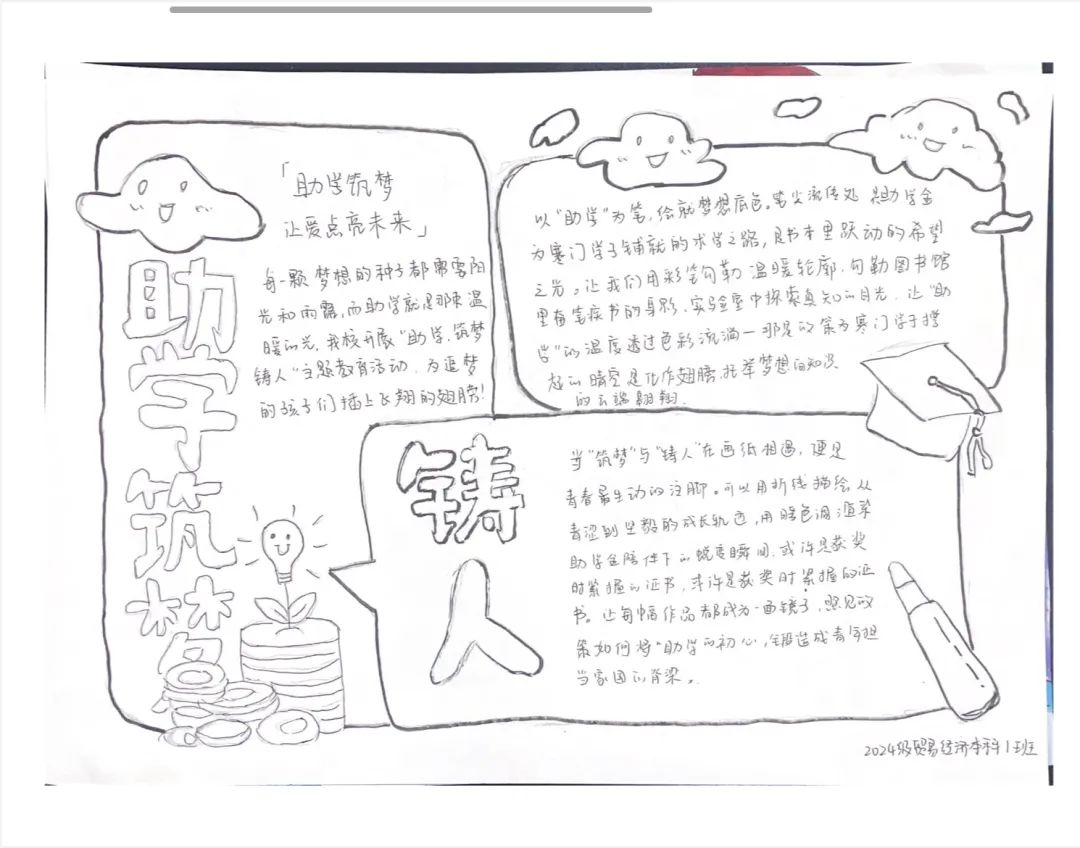 助学筑梦
「助学筑梦
让爱点亮未来」
每一颗梦想的种子都需要阳
光和雨露,而助学就是那束温
暖的光,我校开展"助学,筑梦
铸人"主题教育活动,为追梦
的孩子们插上飞翔的翅膀!
以"助学"为笔,绘就梦想底色。笔尖流传处 是助学金
为寒门学子铺就的求学之路,是书本里跃动的希望
之光。让我们用彩笔勾勒温暖轮廓,勾勒图书馆
里奋笔疾书的身影,实验室中探索真知的目光,让"助
学"的温度透过色彩流淌一那是政策为寒门学子撑
起的晴空是化作翅膀,托举梦想向知识
的云端翱翔.
铸人
当"筑梦"与"铸人"在画纸相遇,便是
青春最生动的注脚。可以用折线描绘从
青涩到坚毅的成长轨迹,用暖色调渲染
助学金陪伴下的蜕变瞬间,或许是获奖
时紧握的证书,或许是获奖时紧握的证
书。让每幅作品都成为一面镜子,照见政
策如何将"助学的初心,锻造成青年担
当家国的脊梁。
2024级贸易经济本科1班